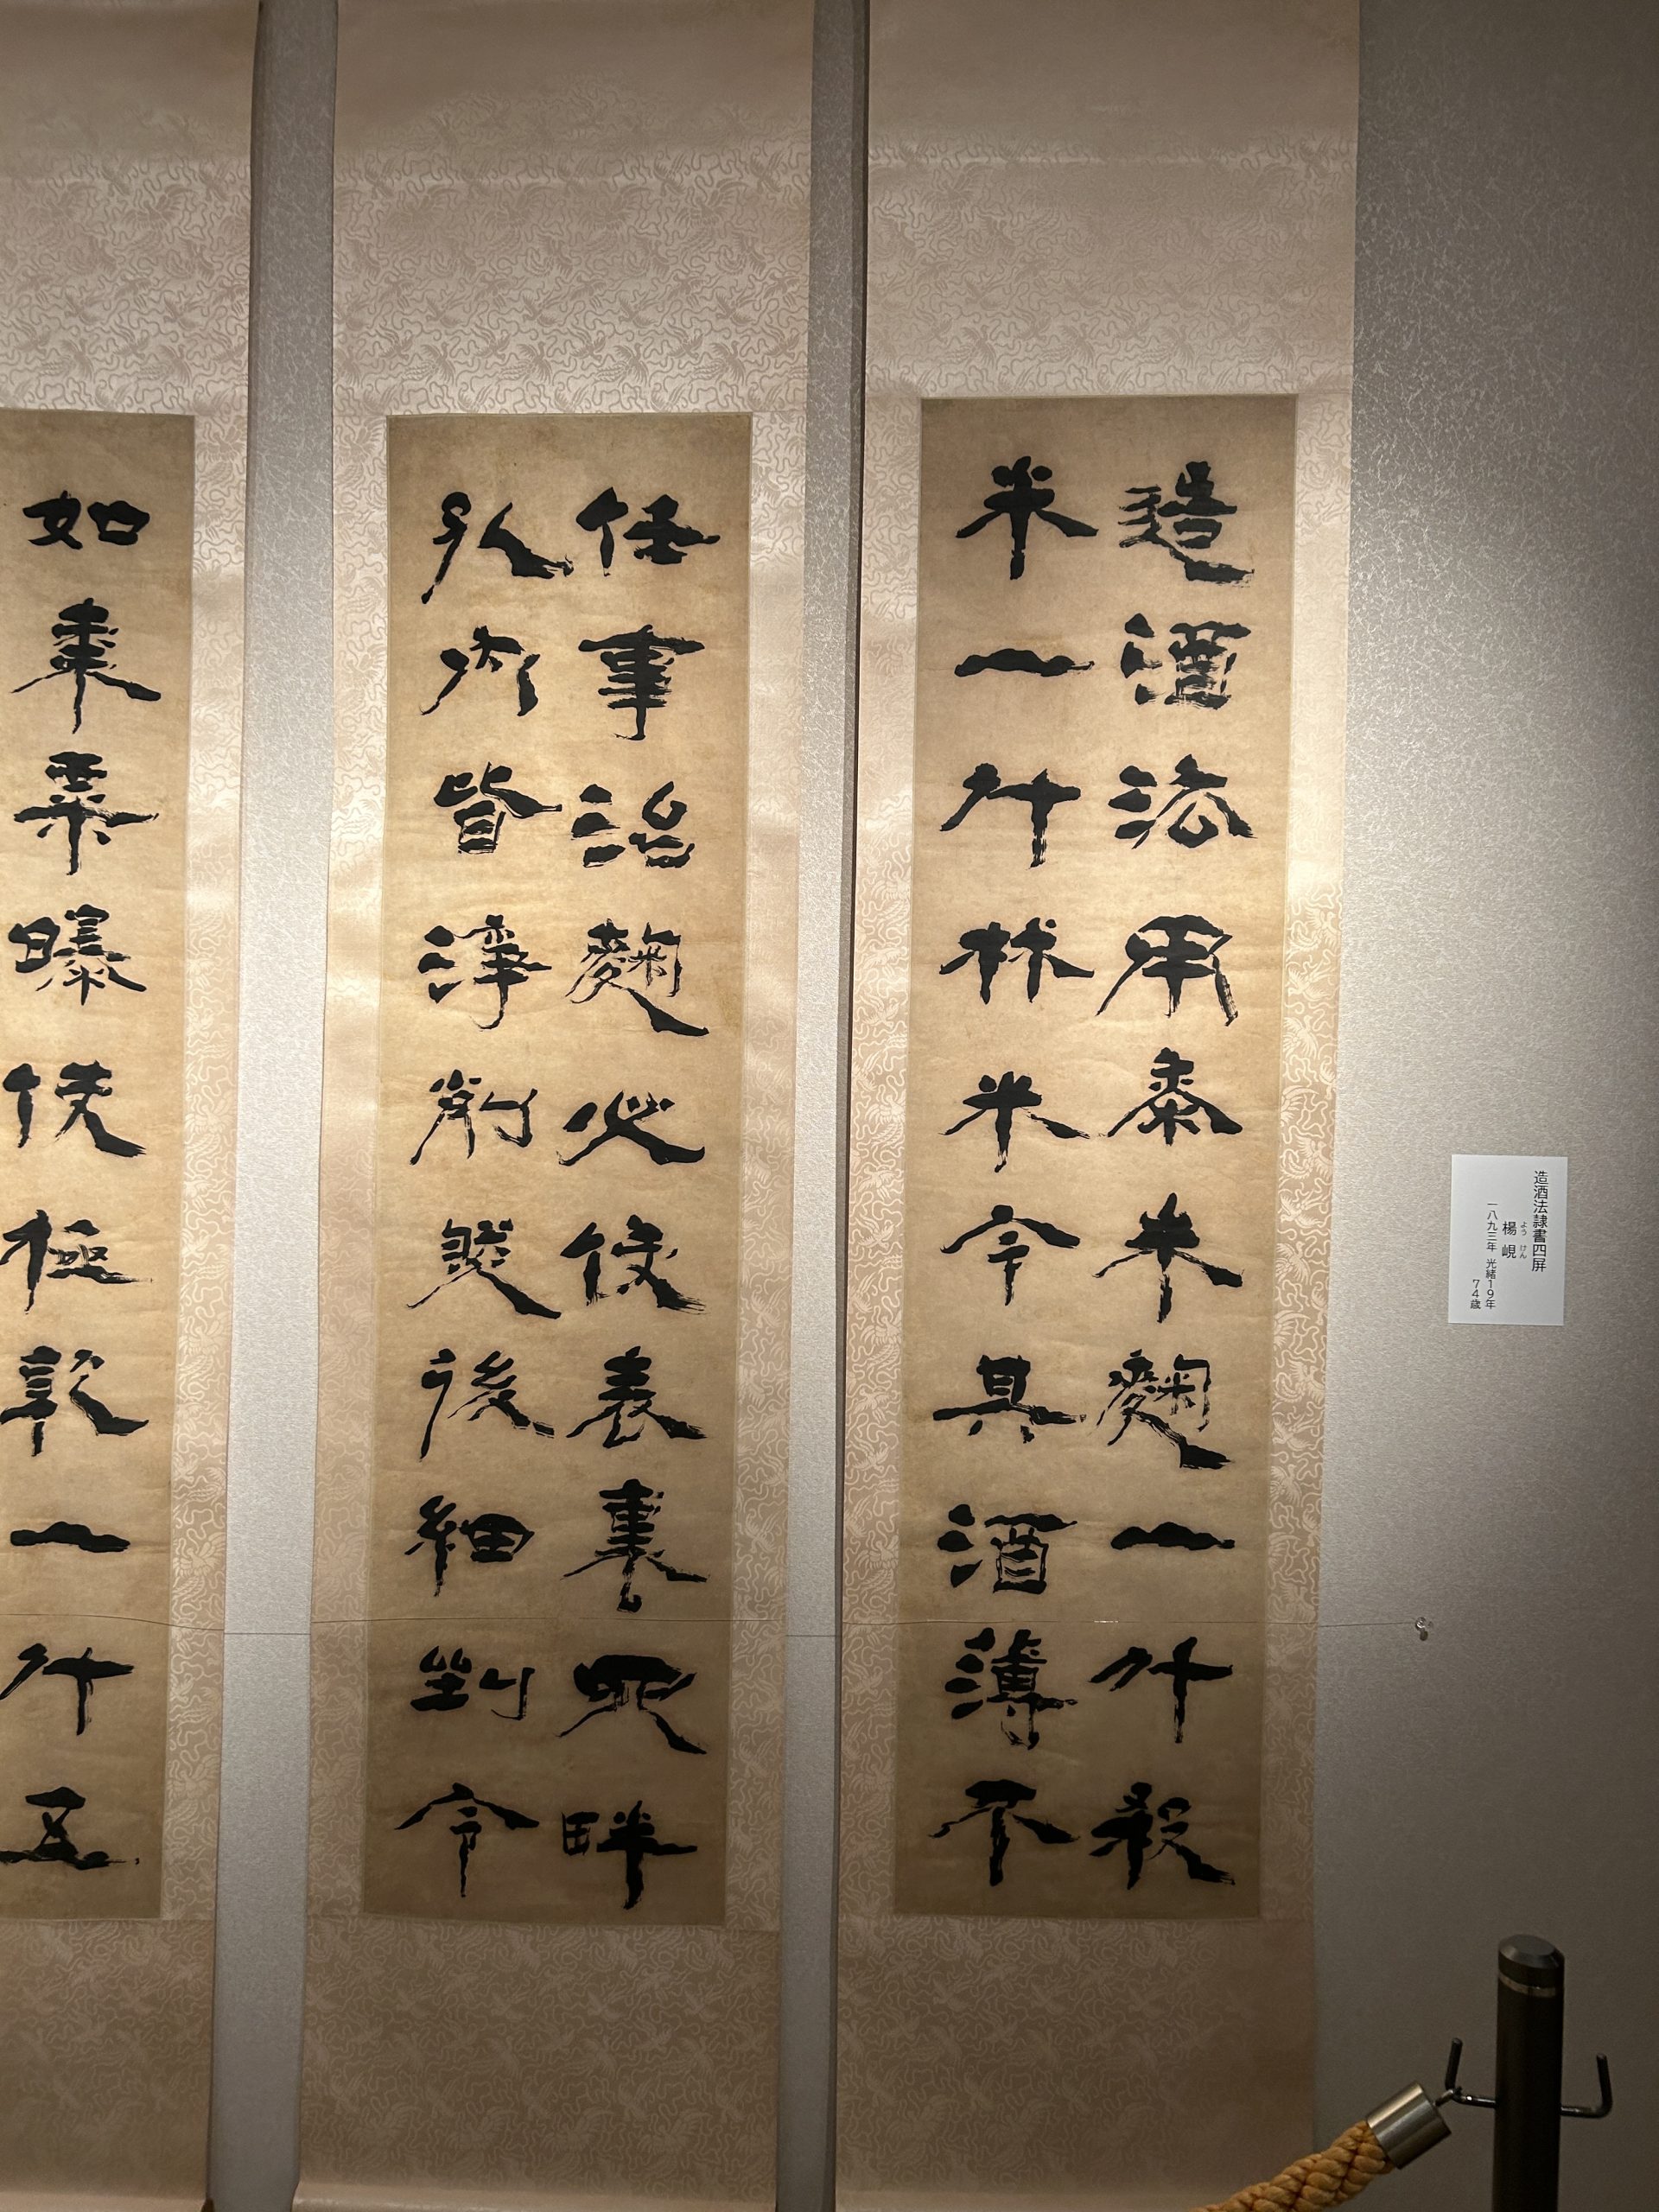 造酒法用黍米麴一斗殺
米一斗秫米令其酒薄不
任事治麴必使表裏四畔
孔內皆淨削然後細剉令
如棗栗曝使極乾一斗五
造酒法隷書四屏
よう けん
楊 峴
一八九三年 光緒19年
74歳